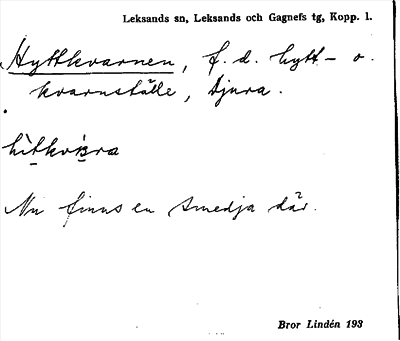 Leksands sn, Leksands och Gagnefs tg, Kopp. l.
Hyttkvarnen, f.d. hytt- o.
kvarnställe, Djura.
Nu finns en smedja där.
Bror Lindén 193